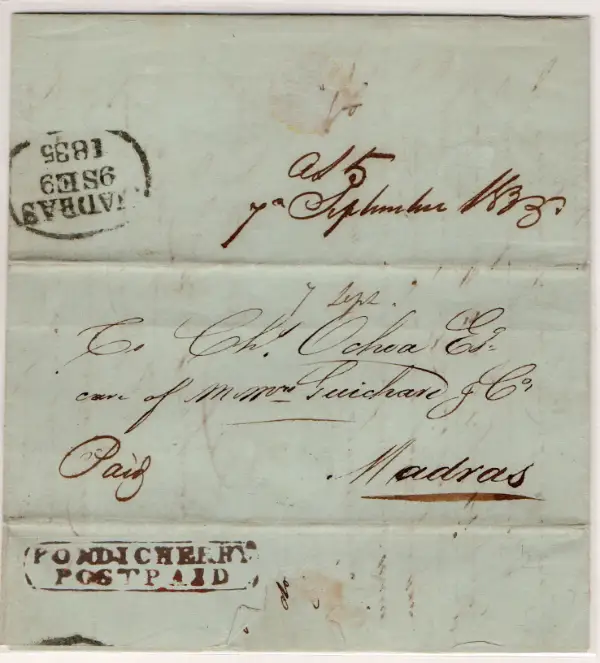 MADRAS
9 SE 9
1835
As 5
7 September 1835
7 Sept.
To Chs. Ochoa Esqr
care of Messrs Guichard & Cos
Paid
Madras
PONDICHERRY
POSTPAID